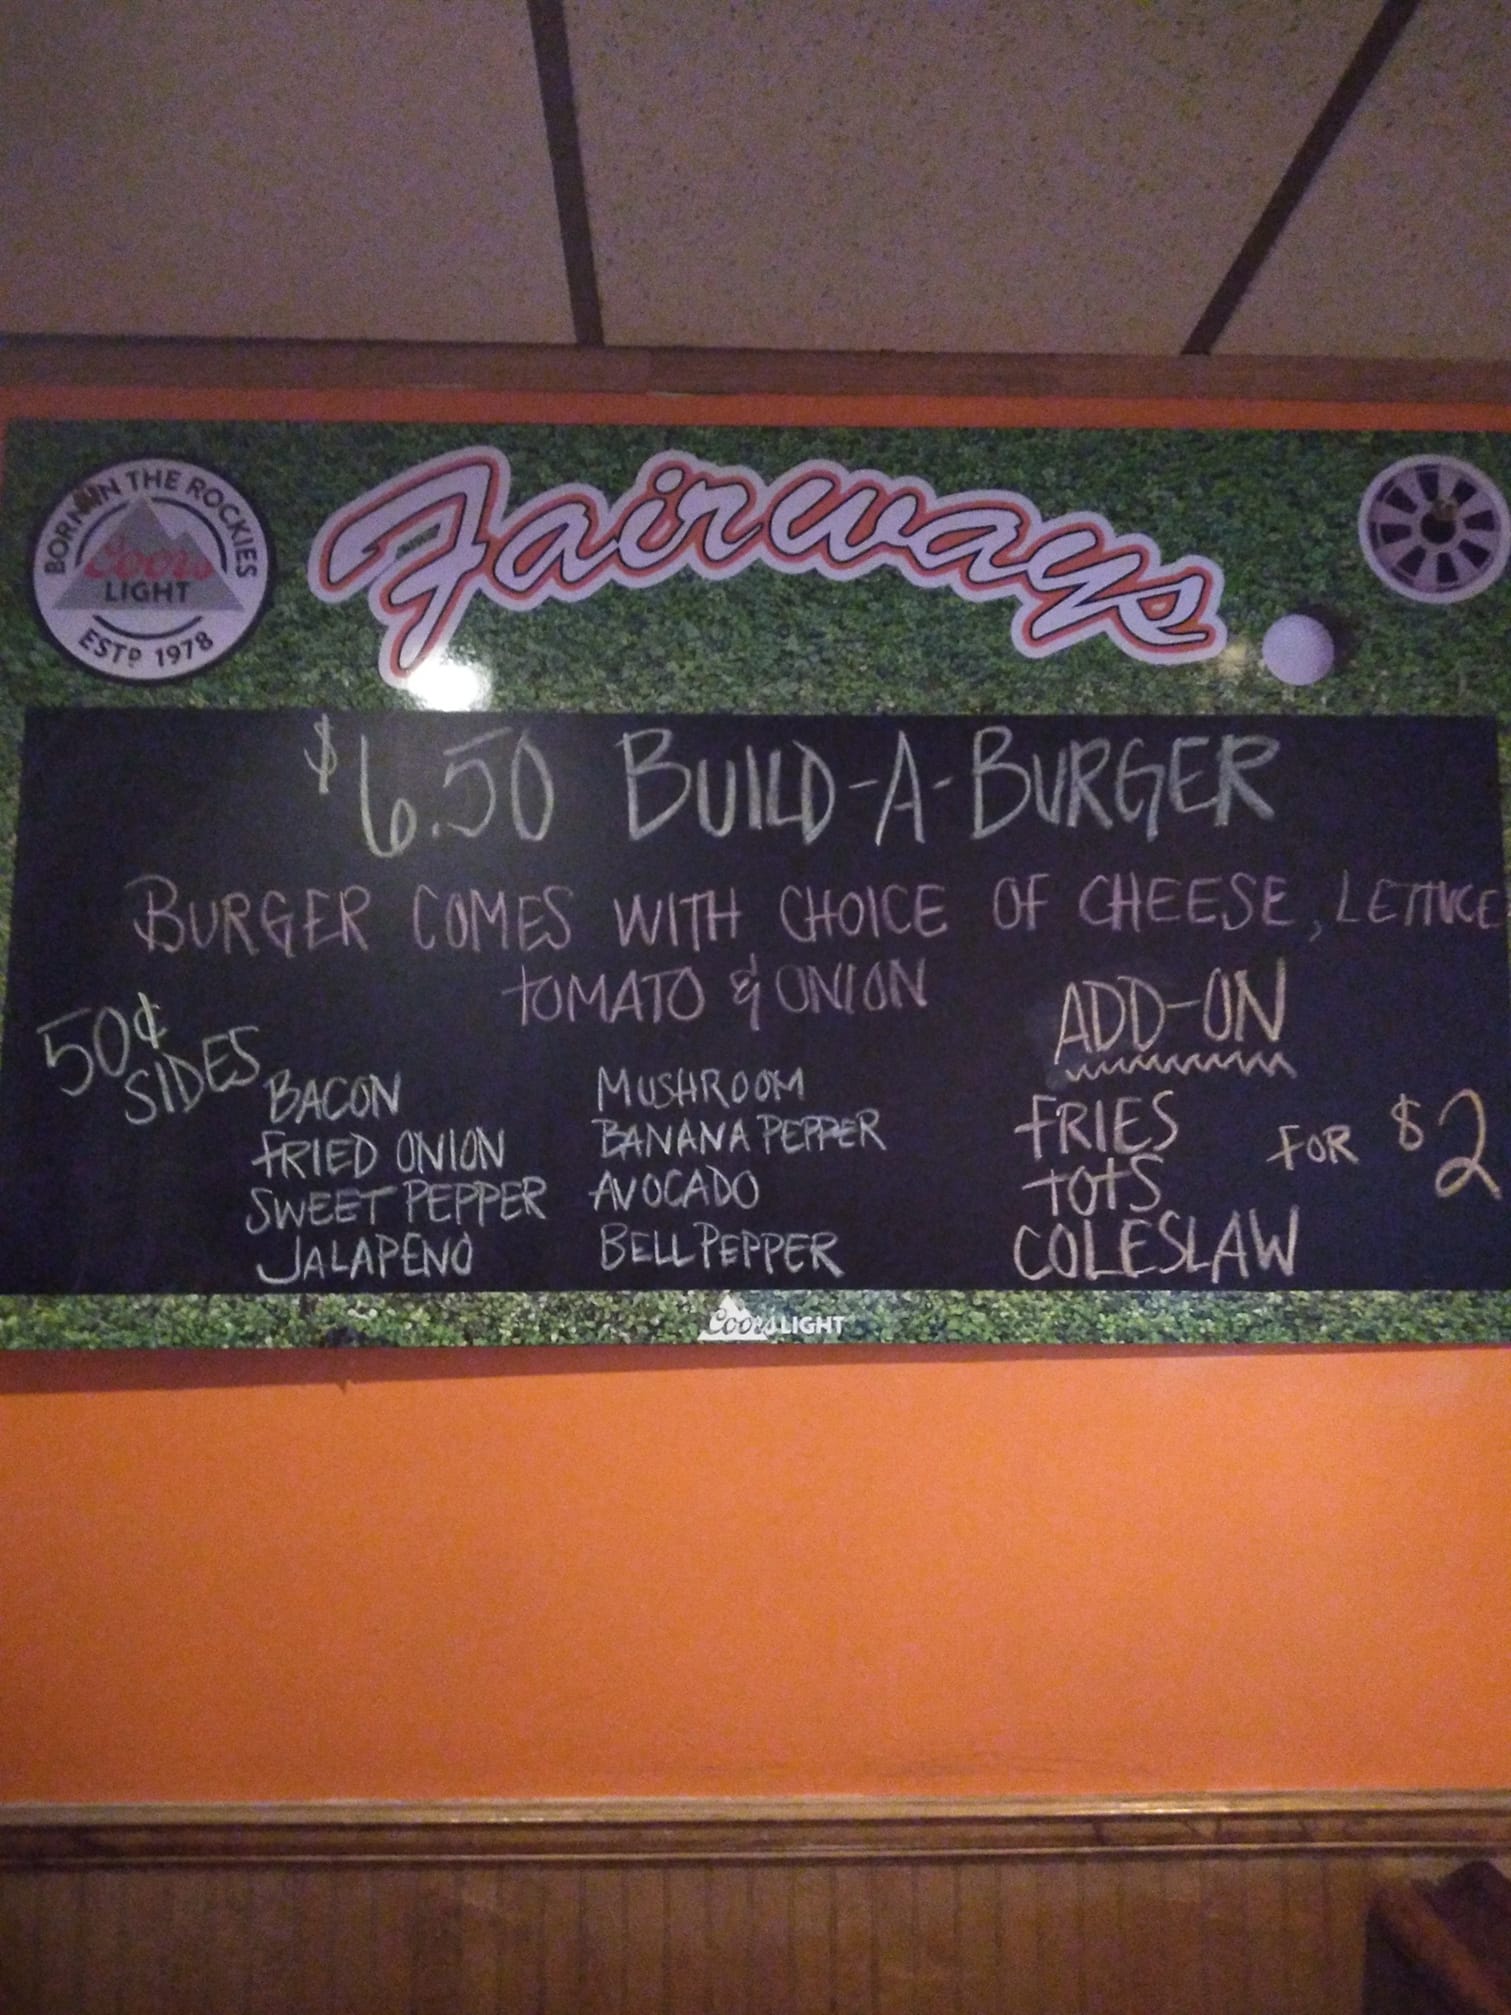 BORN IN THE ROCKIES
Coors
LIGHT
ESTD 1978
Fairways
$6.50 BUILD-A-BURGER
BURGER COMES WITH CHOICE OF CHEESE, LETTUCE
TOMATO & ONION
50¢
SIDES
BACON
FRIED ONION
SWEET PEPPER
JALAPENO
MUSHROOM
BANANA PEPPER
AVOCADO
BELL PEPPER
ADD-ON
FRIES
TOTS
COLESLAW
FOR $2
Coors LIGHT